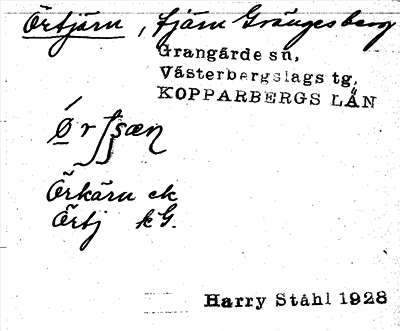 Örtjärn, tjärn Grängesberg
Grangärde sn,
Västerbergslags tg,
KOPPARBERGS LÄN
Örkärn ek
Örtj kG.
Harry Ståhl 1928